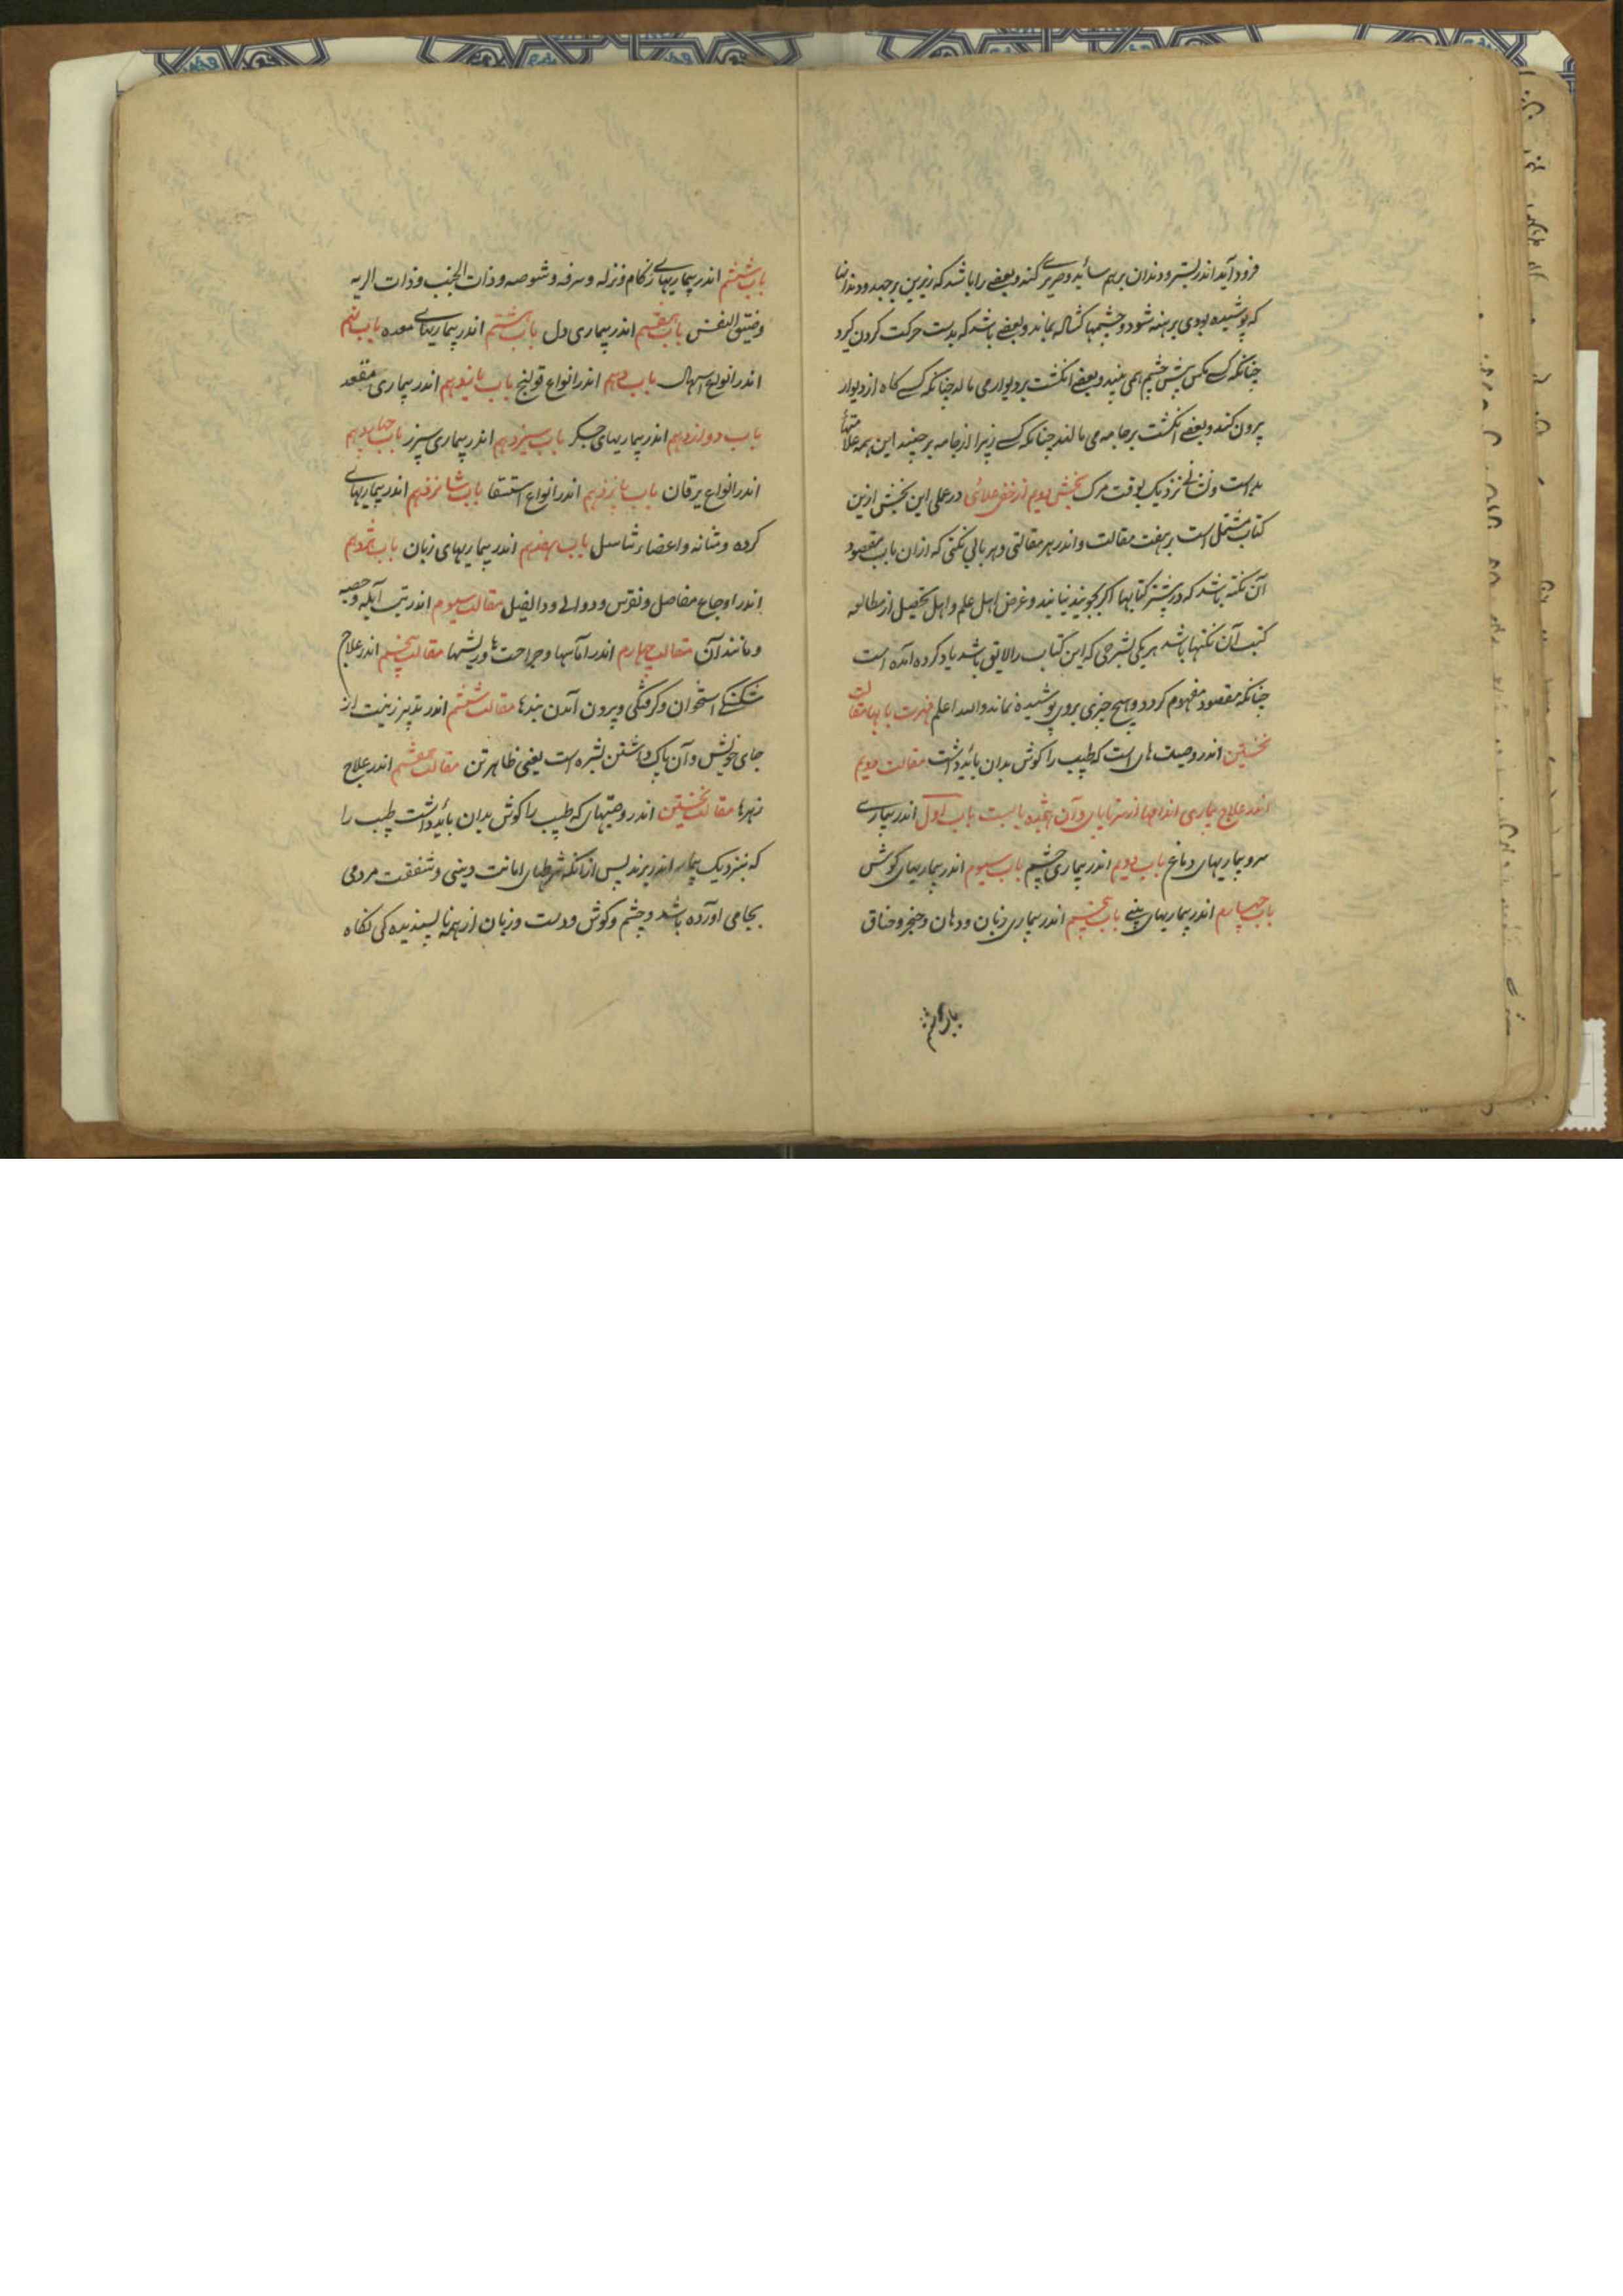 فرود آید اندر بستر و دندان برهم ساید و صریر کند و بعضی را باشد که زیرین برجهد و دندانها
که پوشیده بودی برهنه شود و چشمها کشاله بماند و بعضی باشد که بدست حرکت کردن گیرد
چنانکه کسی مکس پیش چشم همی بیند و بعضی انگشت بر دیوار می مالد چنانکه کسی کاه از دیوار
بیرون کند و بعضی انگشت بر جامه می مالند چنانکه کسی زیبرا از جامه برچیند این همه علامتها
بد است و نشان نزدیک بوقت مرک بخش دویم از خفی علائی در عملی این بخش ازین
کتاب مشتمل است بر هفت مقالت و اندر هر مقالتی و هر بابی نکتی که از ان باب مقصود
آن نکته باشد که در بیشتر کتابها اکر بجویند نیابند و غرض اهل علم و اهل تحصیل از مطالعه
کتب آن نکتها باشد هر یکی بشرحی که این کتاب را لایق باشد یاد کرده آمده است
چنانکه مقصود مفهوم کردد و هیچ چیزی بروی پوشیده نماند والله اعلم فهرست بابها مقالت
نخستین اندر وصیت های است که طبیب را کوش بدان باید داشت مقالت دویم
اندر علاج بیماری اندامها از سر تا پای و آن هجده بابست باب اول اندر بیماری
سر و بیماریهای دماغ باب دویم اندر بیماری چشم باب سیوم اندر بیماریهای کوش
باب چهارم اندر بیماریهای بینی باب پنجم اندر بیماری زبان و دهان و حنجر و خناق
باب ششم
باب ششم اندر بیماریهای زکام و نزله و سرفه و شوصه و ذات الجنب و ذات الریه
و ضیق النفس باب هفتم اندر بیماری دل باب هشتم اندر بیماریهای معده باب نهم
اندر انواع اسهال باب دهم اندر انواع قولنج باب یازدهم اندر بیماری مقعد
باب دوازدهم اندر بیماریهای جکر باب سیزدهم اندر بیماری سپرز باب چهاردهم
اندر انواع یرقان باب پانزدهم اندر انواع استسقا باب شانزدهم اندر بیماریهای
کرده و مثانه و اعضاء تناسل باب هفدهم اندر بیماریهای زنان باب هژدهم
اندر اوجاع مفاصل و نقرس و دوالی و داءالفیل مقالت سیوم اندر تب آبله و حصبه
و مانند آن مقالت چهارم اندر آماسها و جراحت ها و ریشها مقالت پنجم اندر علاج
شکستکی استخوان و کوفتکی و بیرون آمدن بندها مقالت ششم اندر تدبیر زینت از
جای خویش و آن پاک داشتن بشره است یعنی ظاهر تن مقالت هفتم اندر علاج
زهرها مقالت نخستین اندر وصیتهای که طبیب را کوش بدان باید داشت طبیب را
که بنزدیک بیمار اندر برند پس از انکه شرطهای امانت دینی و شفقت مردمی
بجای آورده باشد و چشم و کوش و دست و زبان از همه ناپسندیده کی نگاه